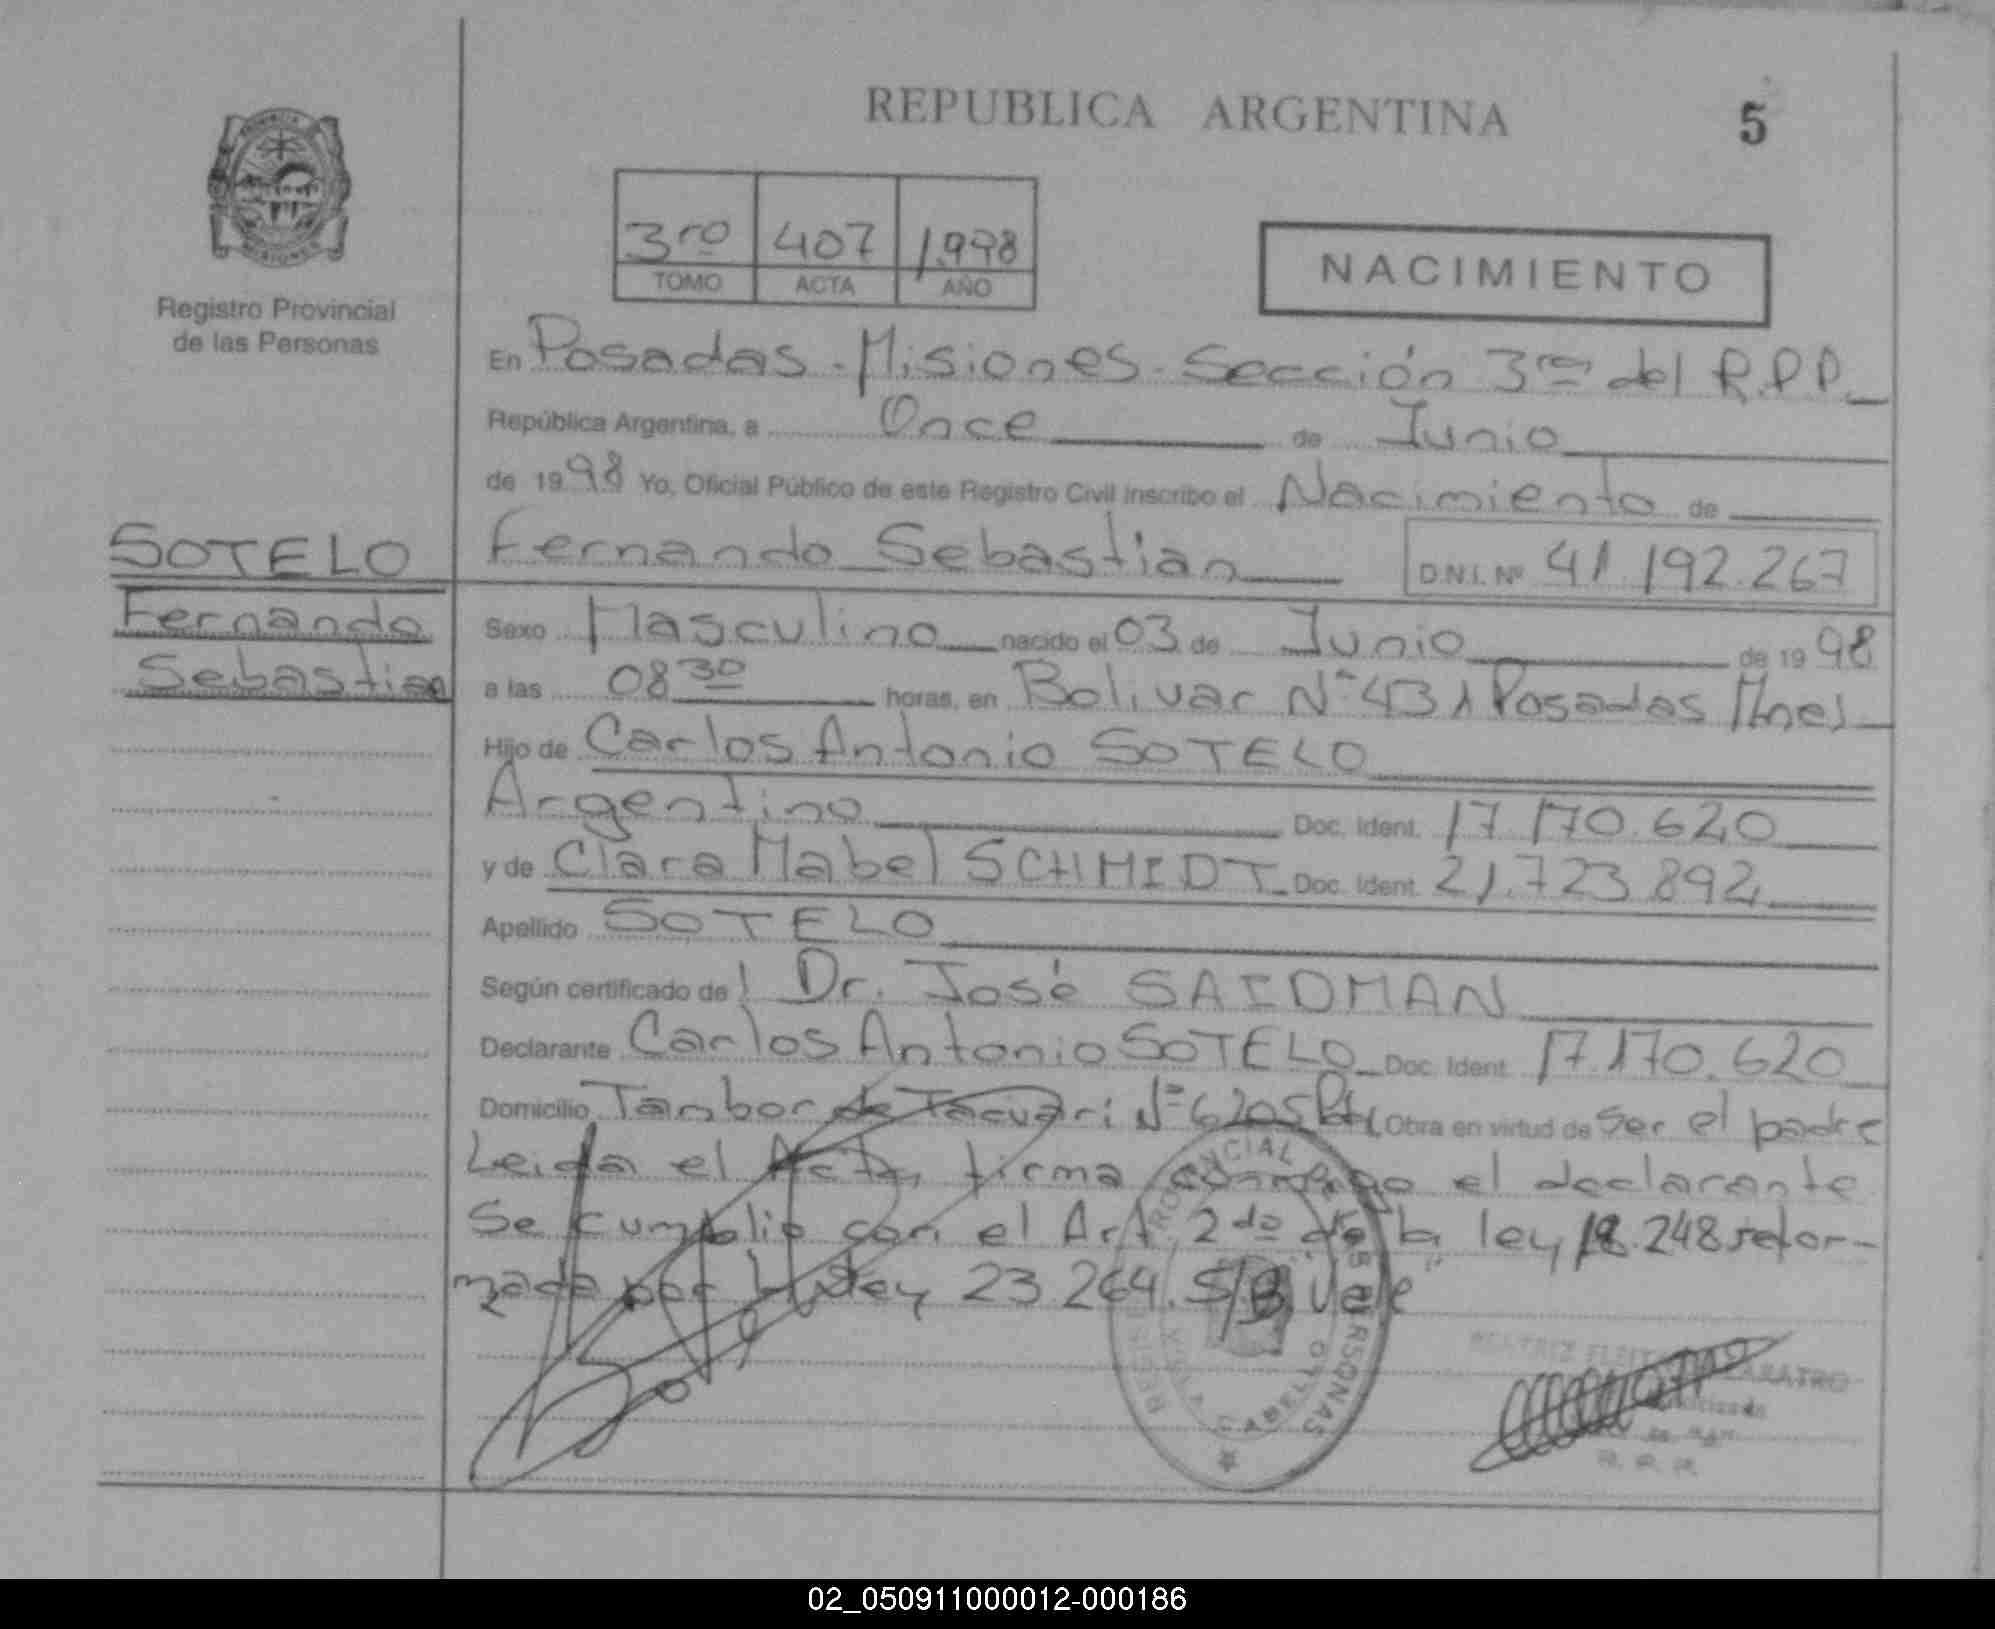 REPUBLICA ARGENTINA
5
3ro 407 1998
TOMO ACTA AÑO
NACIMIENTO
Registro Provincial
de las Personas
En Posadas - Misiones - Sección 3ra del R.P.P.
República Argentina, a Once de Junio
de 1998 Yo, Oficial Público de este Registro Civil inscribo el Nacimiento de
SOTELO
Fernando
Sebastian
Fernando Sebastian D.N.I. Nº 41.192.267
Sexo Masculino nacido el 03 de Junio de 1998
a las 08 30 horas, en Bolivar Nº 431 Posadas Mnes
Hijo de Carlos Antonio SOTELO
Argentino Doc. Ident. 17.170.620
y de Clara Mabel SCHMIDT Doc. Ident. 21.723.892
Apellido SOTELO
Según certificado de Dr. José SAIDMAN
Declarante Carlos Antonio SOTELO Doc. Ident. 17.170.620
Domicilio Tambor de Tacuari Nº 6205 Obra en virtud de ser el padre
Leida el Acta, firma conmigo el declarante
Se cumplio con el Art. 2do de la ley 18.248 refor-
mada por la ley 23.264. S/B Vale
REGISTRO PROVINCIAL DE LAS PERSONAS
VILLA CABELLO
BEATRIZ
R. P. P.
02_050911000012-000186